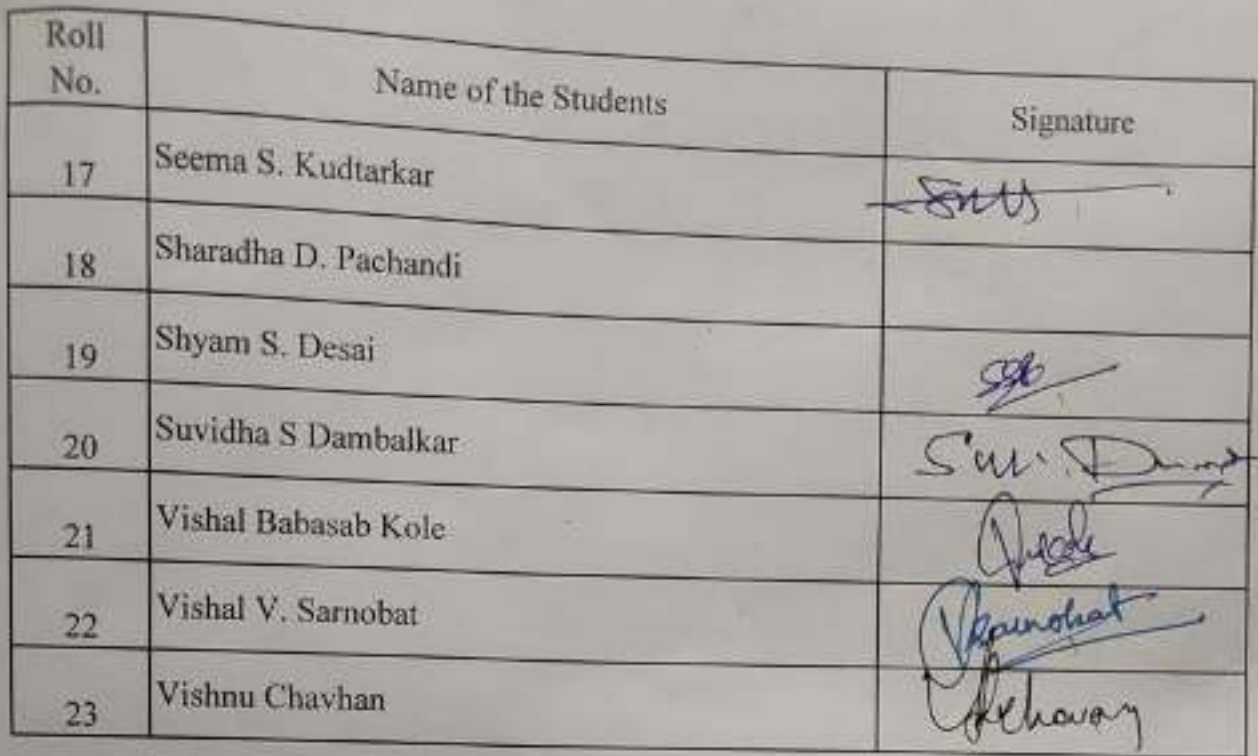 Roll No. Name of the Students Signature
17 Seema S. Kudtarkar
18 Sharadha D. Pachandi
19 Shyam S. Desai
20 Suvidha S Dambalkar
21 Vishal Babasab Kole
22 Vishal V. Sarnobat
23 Vishnu Chavhan